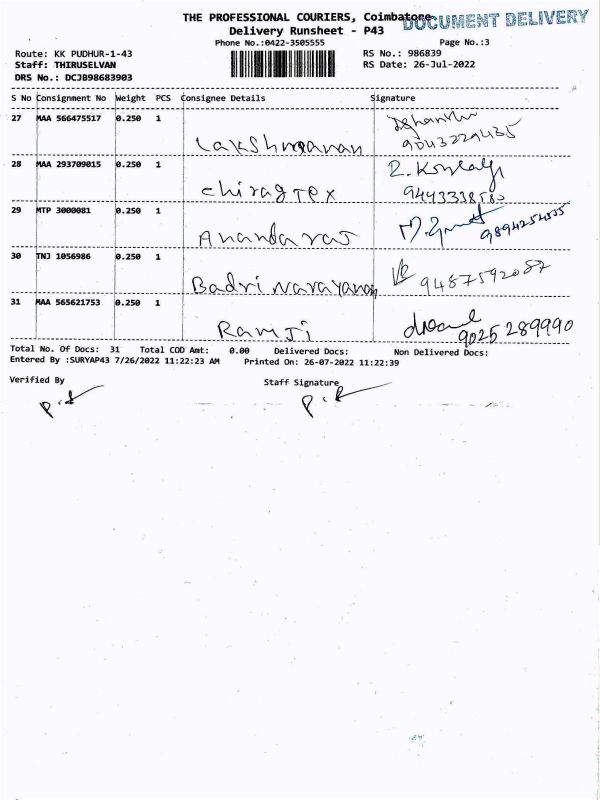 THE PROFESSIONAL COURIERS, Coimbatore
DOCUMENT DELIVERY
Delivery Runsheet - P43
Phone No.:0422-3505555
Page No.:3
Route: KK PUDHUR-1-43
RS No.: 986839
Staff: THIRUSELVAN
RS Date: 26-Jul-2022
DRS No.: DCJB98683903
S No Consignment No Weight PCS Consignee Details Signature
27 MAA 566475517 0.250 1
Lakshmanan
9043229435
28 MAA 293709015 0.250 1
chirag Tex
29 MTP 3000081 0.250 1
Anandarao
30 TNJ 1056986 0.250 1
Badri Narayanan 9487592087
31 MAA 565621753 0.250 1
Ramji 9025 289990
Total No. Of Docs: 31 Total COD Amt: 0.00 Delivered Docs: Non Delivered Docs:
Entered By :SURYAP43 7/26/2022 11:22:23 AM Printed On: 26-07-2022 11:22:39
Verified By Staff Signature